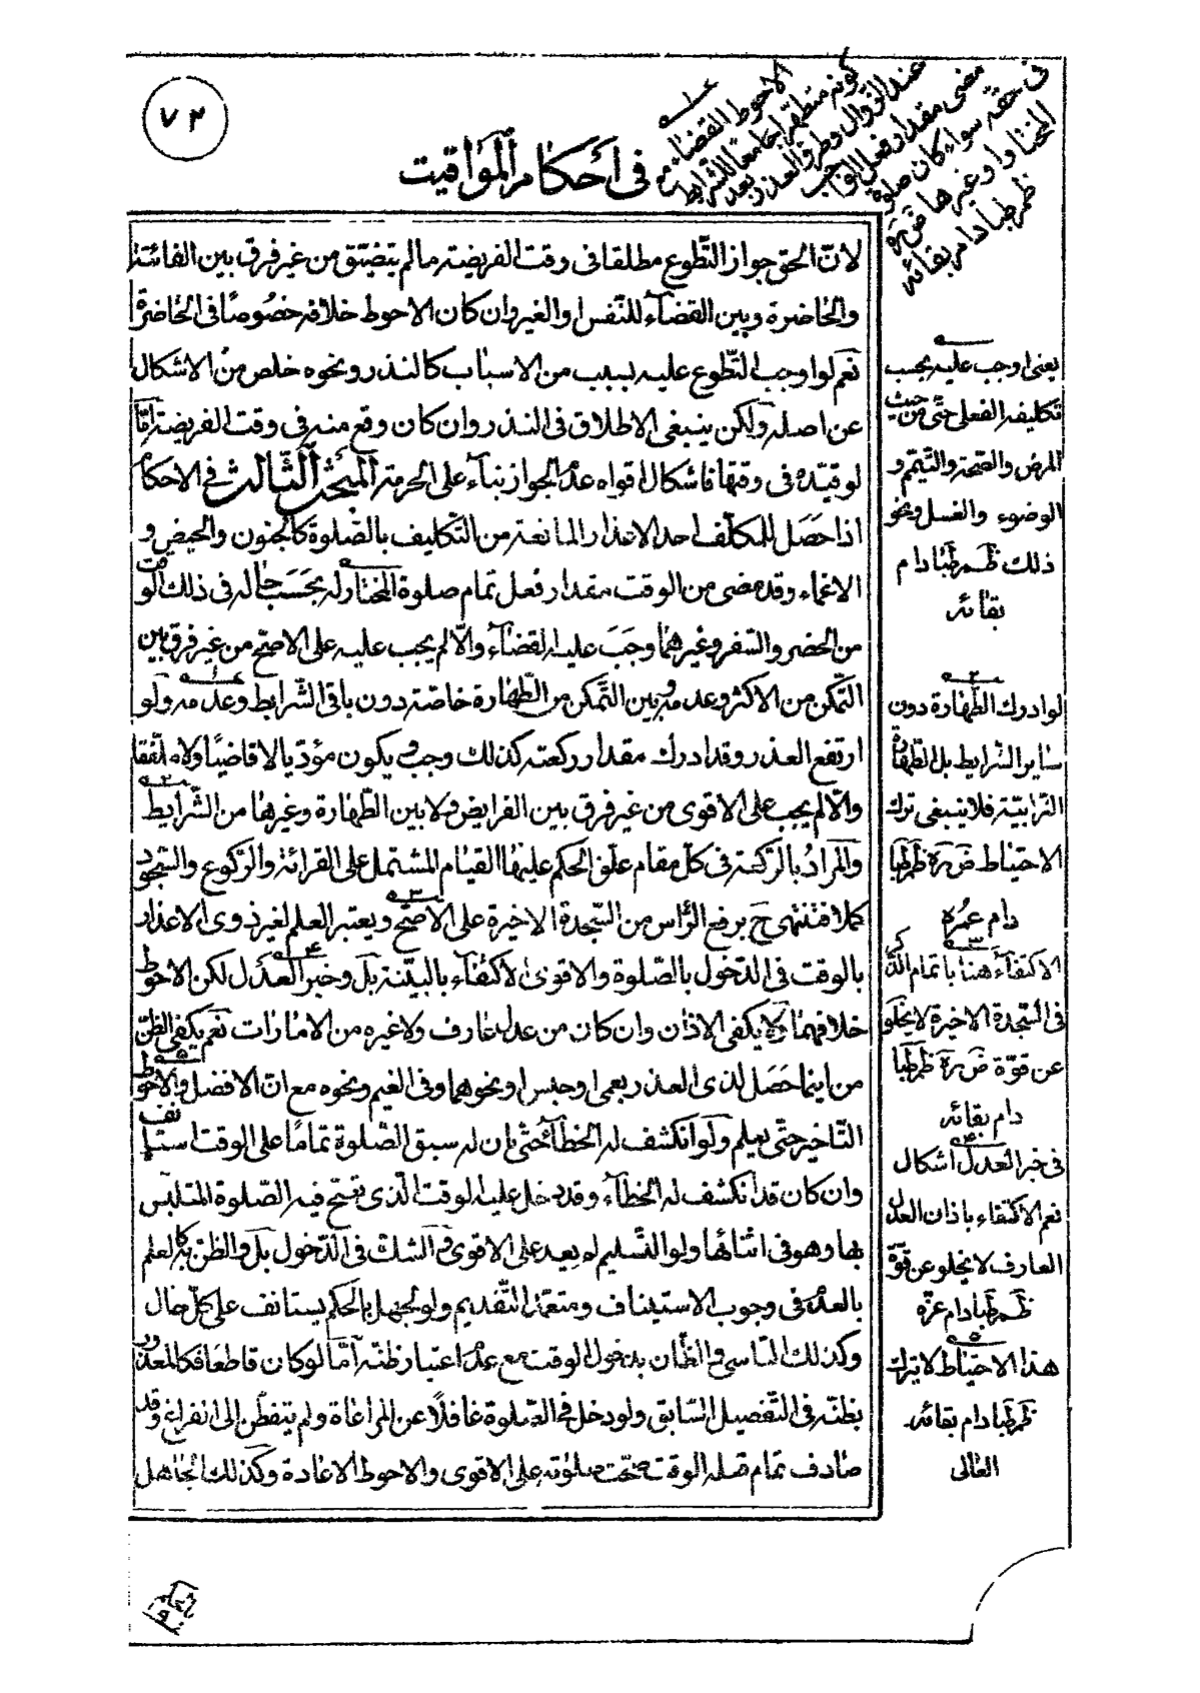 ٧٢
فى احكام المواقيت
لانّ الحق جواز التّطوع مطلقا فى وقت الفريضته مالم يتضيّق من غير فرق بين الفائتة
والحاضرة وبين القضآء للنّفس او الغير وان كان الاحوط خلافه خصُوصًا فى الحاضرة
نعم لو اوجب التّطوع عليه بسبب من الاسباب كالنذر ونحوه خلص من الاشكال
عن اصله ولكن ينبغى الاطلاق فى النذر وان كان وقع منه فى وقت الفريضة امّا
لو قيّده فى وقتها فاشكال اقواه عدم الجواز بناءً على الحرمة المبحث الثّالث فى الاحكام
اذا حَصَل للمكلّف احد الاعذار المانعة من التّكليف بالصّلوة كالجنون والحيض و
الاغماء وقد مضى من الوقت مقدار فعل تمام صلوة المختار له بحَسَب حاله فى ذلك الوقت
من الحضر والسّفر وغيرهما وجَبَ عليه القضآء والّا لم يجب عليه على الاصحّ من غير فرق بين
التّمكّن من الاكثر وعدمه وبين التّمكّن من الطّهارة خاصّته دون باقى الشّرايط وعدمه ولو
ارتفع العذر وقد ادرك مقدار ركعته كذلك وجب ويكون مؤدّيا لا قاضيًا ولا ملفّقا
والّا لم يجب على الاقوى من غير فرق بين الفرايض ولا بين الطّهارة وغيرها من الشّرايط
والمرادُ بالرّكعة فى كلّ مقام علّق الحكم عليها القيام المشتمل على القرائة والرّكوع والسّجود
كملا فتنتهى ح برفع الرّاس من السّجدة الاخيرة على الاصحّ ويعتبر العلم لغير ذوى الاعذار
بالوقت فى الدّخول بالصّلوة والاقوى الاكتفآء بالبيّنة بل وخبر العدل لكن الاحوط
خلافهما ولا يكفى الاذان وان كان من عدل عارف ولا غيره من الامارات نعم يكفى الظنّ
من اينما حَصَل لذى العذر بعمى او حبس او نحوهما وفى الغيم ونحوه مع انّ الافضل والاحوط
التّاخير حتّى يعلم ولو انكشف له الخطآء حتّى بان له سبق الصّلوة تمامًا على الوقت استانف
وان كان قد انكشف له الخطآء وقد دخل عليه الوقت الّذى تصحّ فيه الصّلوة المتلبّس
بها وهو فى اثنائها ولو التّسليم لم يعد على الاقوى والشك فى الدّخول بل والظن به كالعلم
بالعدم فى وجوب الاستيناف ومتعمّد التّقديم ولو لجهل بالحكم يستانف على كلّ حال
وكذلك النّاسى والظّان بدخول الوقت مع عدم اعتبار ظنّه امّا لو كان قاطعًا فكالمعذور
بظنّه فى التّفصيل السّابق ولو دخل فى الصّلوة غافلًا عن المراعاة ولم يتفطّن الى الفراغ وقد
صادف تمام فعله الوقت صحّت صلوته على الاقوى والاحوط الاعادة وكذلك الجاهل
الاحوط القضاء مع
كونه متطهرا جامعا للشرايط
عند الزوال وطروّ العذر بعد
مضى مقدار فعل الواجب
فى حقه سواء كان صلوة
المختار او غيرها ضرره
ظم طبا دام بقائه
يعنى اوجب عليه بحسب
تكليفه الفعلى حتّى من حيث
المرض والصّحة والتّيمّم و
الوضوء والغسل ونحو
ذلك ظم طبا دام
بقائه
لو ادرك الطّهارة دون
ساير الشّرايط بل الطّهارة
التّرابيّة فلا ينبغى ترك
الاحتياط ض ره ظم طبا
دام عمره
الاكتفآء هنا باتمام الذّكر
فى السّجدة الاخيرة لا يخلو
عن قوّة ض ره ظم طبا
دام بقائه
فى خبر العدل اشكال
نعم الاكتفاء باذان العدل
العارف لا يخلو عن قوّة
ظم طبا دام عزّه
هذا الاحتياط لا يترك
ظم طبا دام بقائه
العالى